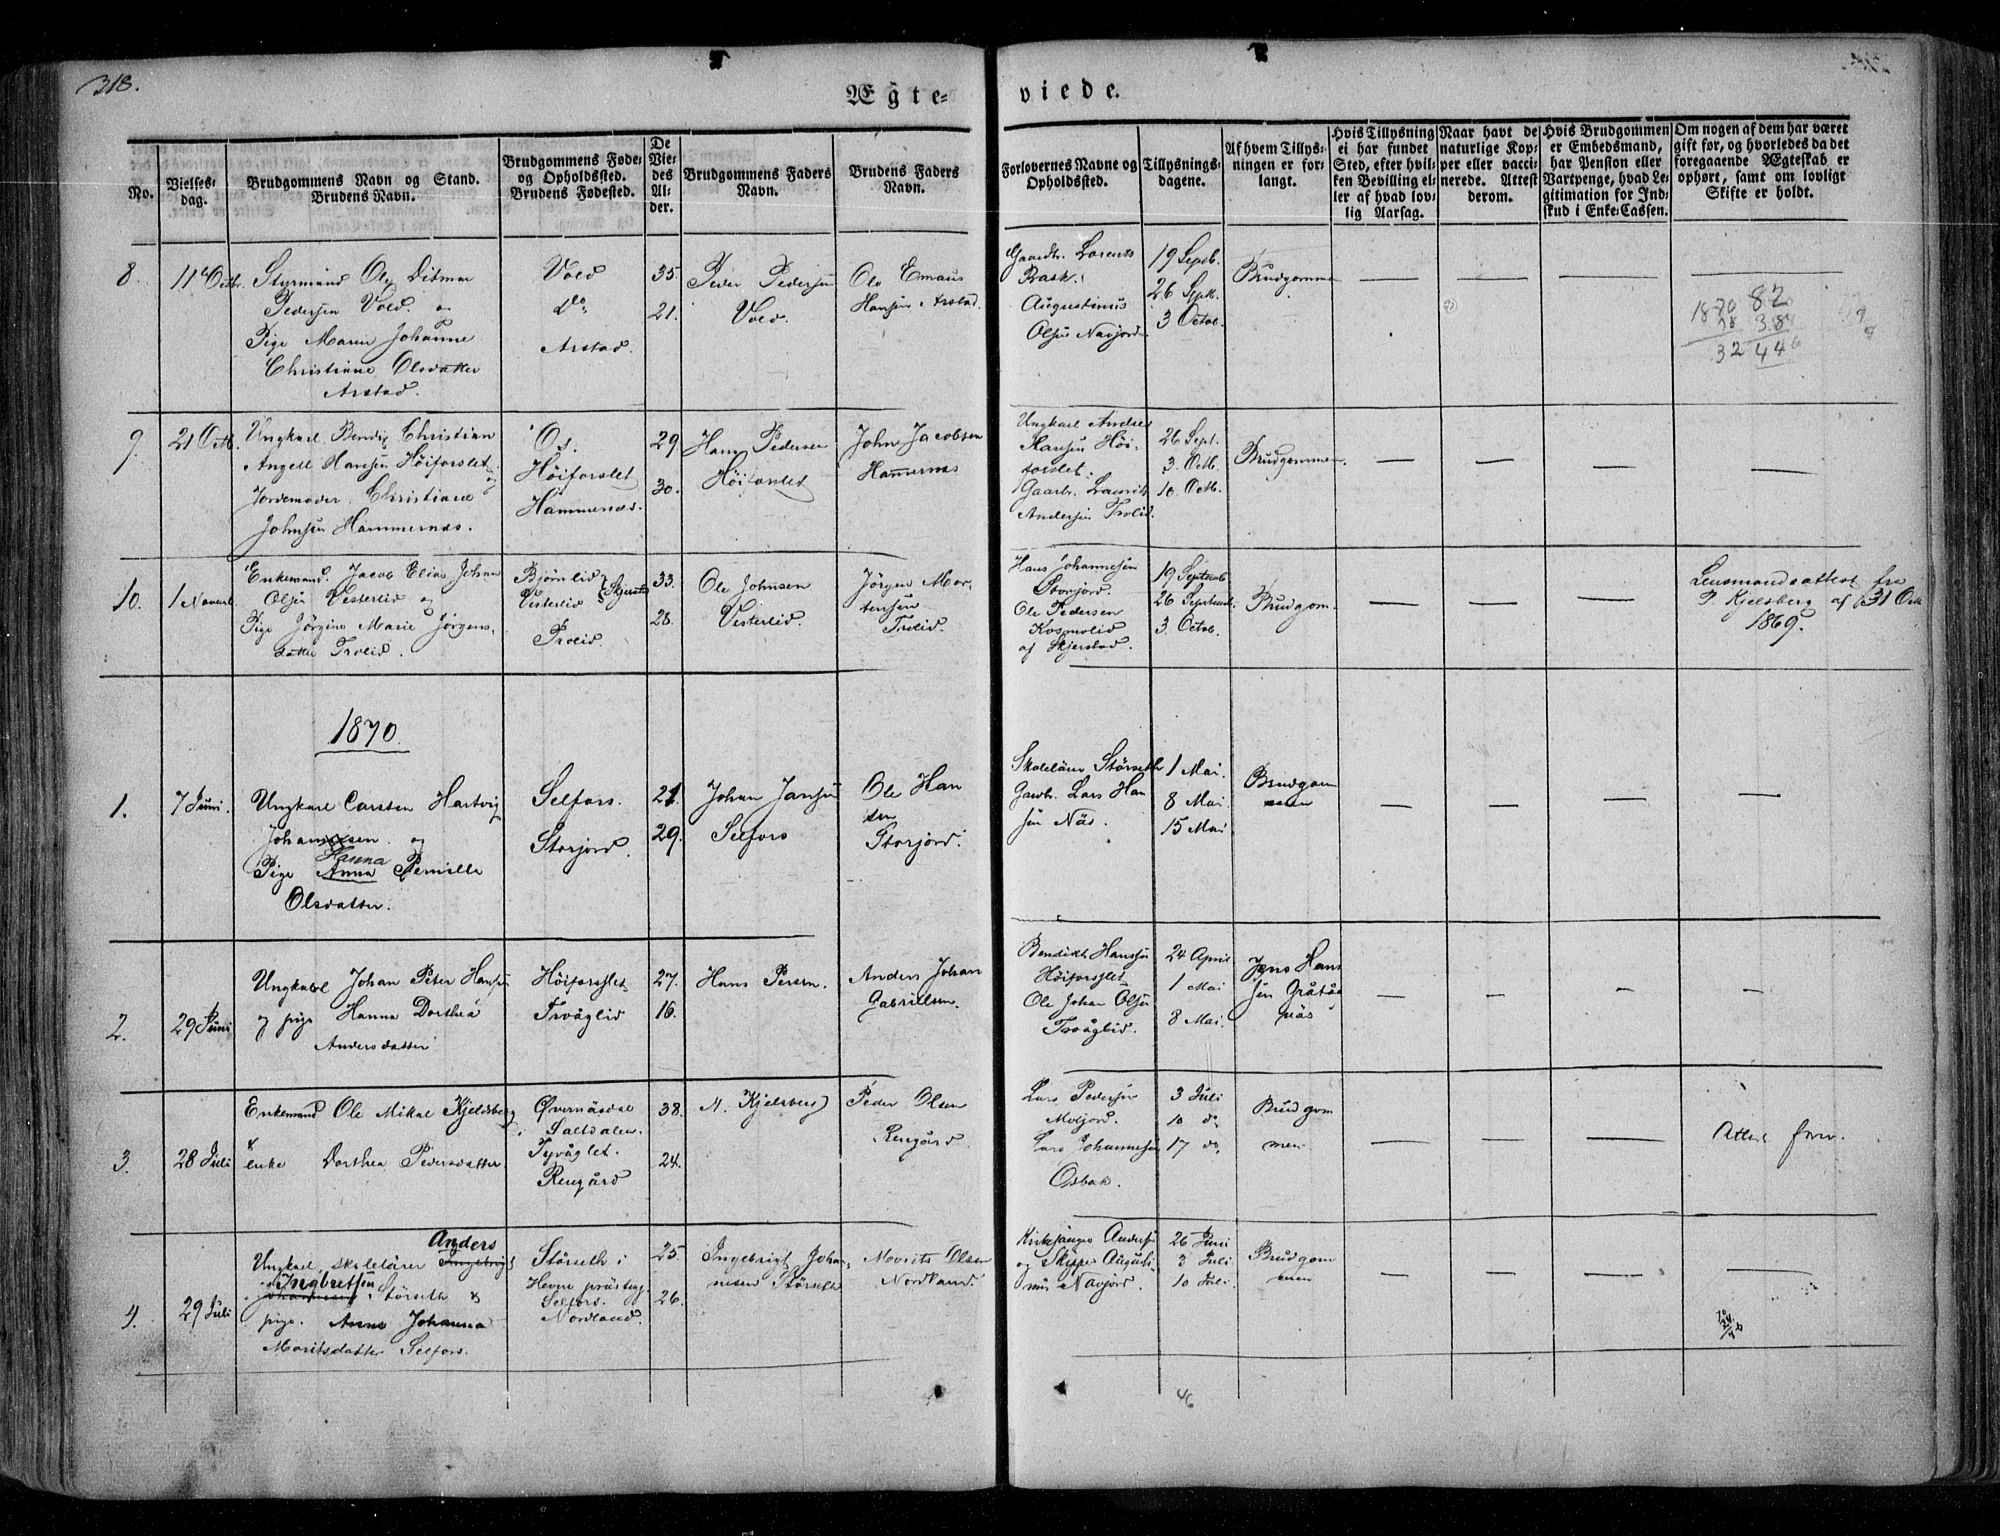 318.
Ægte-
viede.
No.
Vielses-
dag.
Brudgommens Navn og Stand.
Brudens Navn.
Brudgommens Føde-
og Opholdssted.
Brudens Fødested.
De
Vie-
des
Al-
der.
Brudgommens Faders
Navn.
Brudens Faders
Navn.
Forlovernes Navne og
Opholdssted.
Tillysnings-
dagene.
Af hvem Tillys-
ningen er for-
langt.
Hvis Tillysning
ei har fundet
Sted, efter hvil-
ken Bevilling el-
ler af hvad lov-
lig Aarsag.
Naar havt de
naturlige Kop-
per eller vacci-
nerede. Attest
derom.
Hvis Brudgommen
er Embedsmand,
har Pension eller
Vartpenge, hvad Le-
gitimation for Ind-
skud i Enke-Cassen.
Om nogen af dem har været
gift før, og hvorledes da det
foregaaende Ægteskab er
ophørt, samt om lovligt
Skifte er holdt.
8.
11 Octbr.
Styrmand Ole Ditmar
Pedersen Vold og
Pige Maren Johanne
Christiane Olsdatter
Arstad.
Vold
Do
Arstad.
35.
21.
Peder Pedersen
Vold.
Ole Emaus
Hansen Arstad.
Gaardb. Lorents
Bask.
Augustinus
Olsen Navjord
19 Septb.
26 Septb.
3 Octob.
Brudgomme
1870 82
28 38
32 44
9.
21 Octb.
Ungkarl Bendig Christian
Angell Hansen Höiforslet
og
Jordemoder Christiane
Johnsen Hammernæs.
Os.
Höiforslet
Hammernæs.
29.
30.
Hans Pedersen
Höiforslet
John Jacobsen
Hammernæs
Ungkarl Andreas
Hansen Höi-
forslet.
Gaardb. Laurits
Andersen Trolid.
26 Sept.
3. Octb.
10. Octb.
Brudgommen.
10.
1 Novenb.
Enkemand. Jacob Elias Johan
Olsen Vesterlid og
Pige Jörgine Marie Jörgens-
datter Trolid.
Bjørnlid
Vesterlid } Skjerstad
Trolid.
33.
28.
Ole Johnsen
Vesterlid.
Jörgen Mor-
tensen
Trolid.
Hans Johannesen
Storjord.
Ole Pedersen
Kosmolid
af Skjerstad.
19 Septemb.
26 Septemb.
3. Octob.
Brudgom.
Lensmandsattest fra
P. Kjelsberg af 31 Octb
1869.
1870.
1.
7 Juni.
Ungkarl Carsten Hartvig
Johansen og
Hanna
Pige Anna Pernille
Olsdatter.
Selfors.
Storjord.
21.
29.
Johan Jansen
Selfors
Ole Han
sen
Storjord.
Skolelärer Störseth
Gaardb. Lars Han
sen Näs.
1 Mai.
8 Mai.
15 Mai.
Brudgom
men
2.
29 Juni
Ungkarl Johan Peter Hansen
og pige Hanna Dorthea
Andersdatter
Höiforslet
Trväglid
27.
16.
Hans Persen.
Anders Johan
Gabrielsen.
Bendikt Hansen
Höiforslet
Ole Johan Olsen
Troåglid.
24 April
1 Mai
8 Mai.
Jens Hans
sen Gråtåd
näs
3.
28 Juli
Enkemand Ole Mikal Kjeldsberg
&
enke Dorthea Pedersdatter
Øvernäsdal
i Saltdalen.
Tyväglet.
Rengård
38.
24.
N. Kjelsberg
Peder Olsen
Rengård.
Lars Pedersen
Moljord.
Lars Johannesen
Osbak.
3 Juli
10 do
17 do
Brudgom
men
Attest forev.
4.
29 Juli
Anders
Ungkarl, skolelärer Ingebrigt
Ingbretsen
Störseth &
pige. Anne Johanna
Moritsdatter Selfors.
Störseth i
Hevne prästeg.
Selfors.
Nordland.
25
26.
Ingebrigt Johan-
nesen Störseth
Morits Olsen
Nordland.
Kirkesanger Andersen
og Skipper Augusti-
nus Navjord.
26 Juni
3 Juli
10 Juli.
Brudgom
men
46